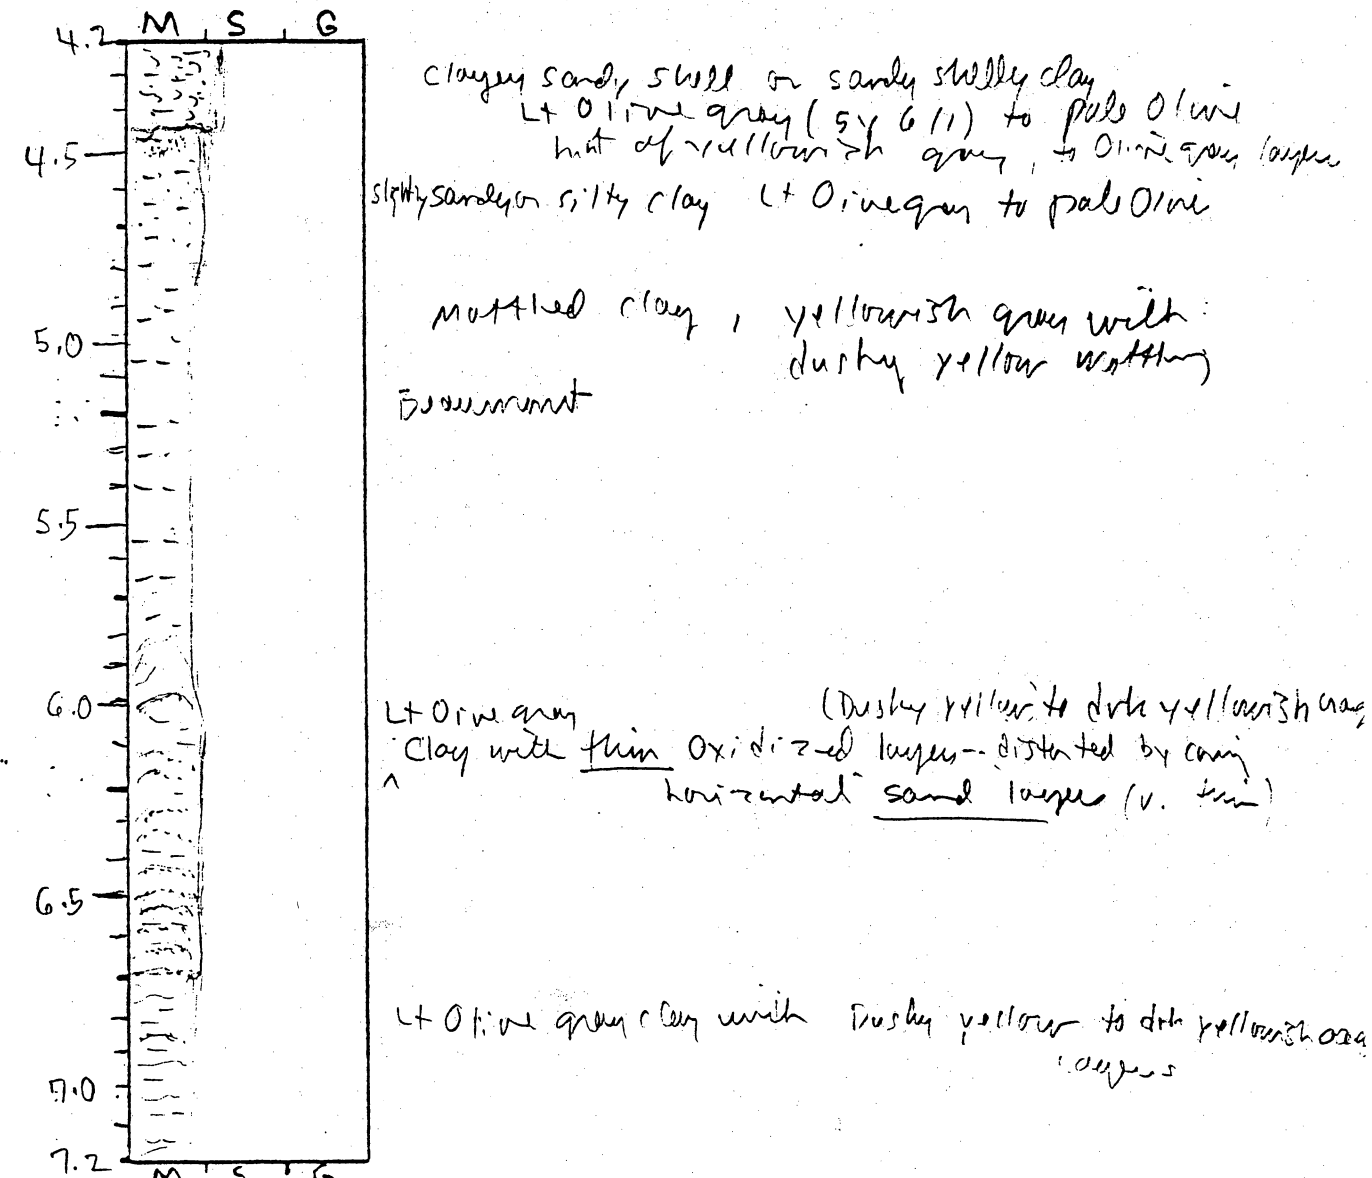 M S G
4.2
clayey sandy shell or sandy shelly clay
Lt Olive gray (5Y 6/1) to pale Olive
4.5
hint of yellowish gray, to Olive gray layers
slightly sandy or silty clay Lt Olive gray to pale Olive
Mottled clay, yellowish gray with
5.0
dusky yellow mottling
Beaumont
5.5
6.0
Lt Olive gray (Dusky yellow to drk yellowish
Clay with thin Oxidized layers -- distorted by coring
^
horizontal sand layers (v. thin)
6.5
Lt Olive gray clay with Dusky yellow to drk yellowish
layers
7.0
7.2
M S G